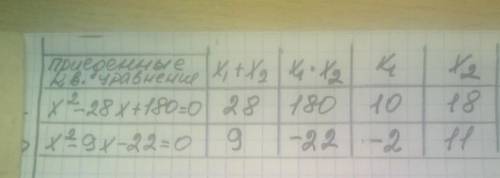 приведенные кв. уравнение x₁+x₂ x₁·x₂ x₁ x₂
x²-28x+180=0 28 180 10 18
x²-9x-22=0 9 -22 -2 11